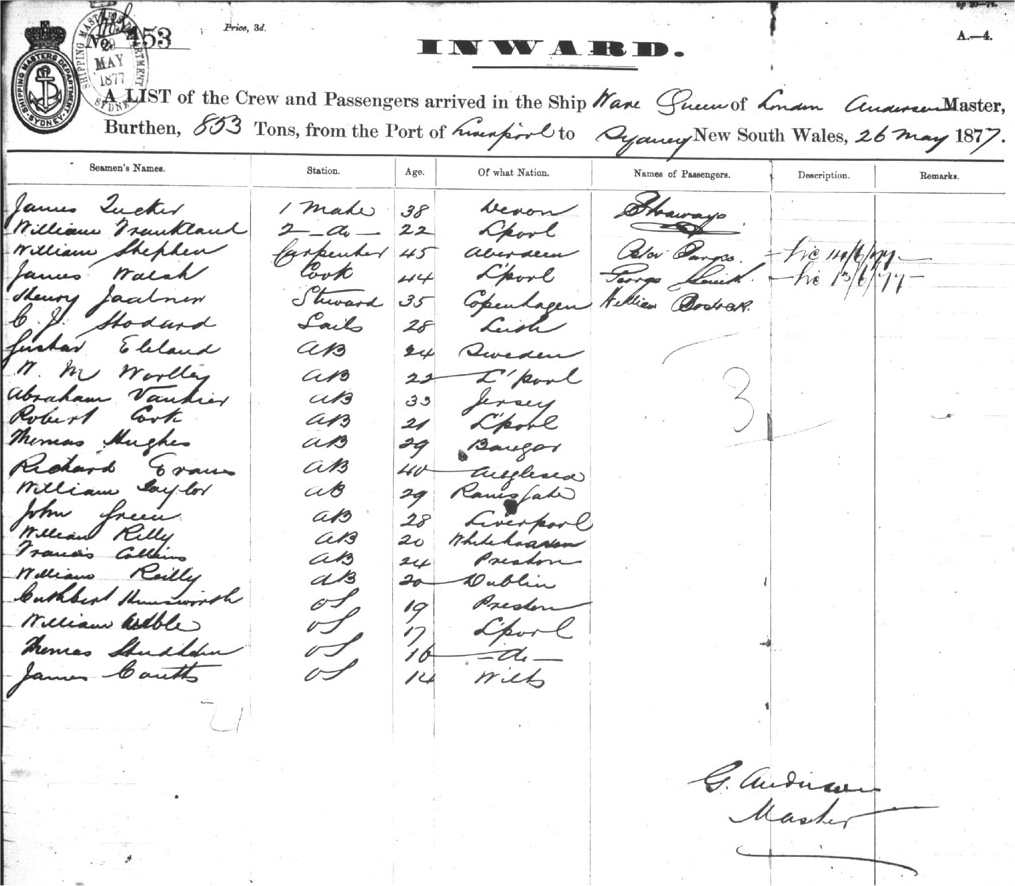 No. 453
Price, 3d.
A.—4.
SHIPPING MASTER'S DEPARTMENT SYDNEY
MAY 1877
INWARD.
A LIST of the Crew and Passengers arrived in the Ship Wave Queen of London Anderson Master,
Burthen, 853 Tons, from the Port of Liverpool to Sydney New South Wales, 26 May 1877.
Seamen's Names. Station. Age. Of what Nation. Names of Passengers. Description. Remarks.
James Tucker 1 Mate 38 Devon Stoways
William Frankland 2 -do- 22 L'pool
William Stephen Carpenter 45 Aberdeen Peter
James Walsh Cook 44 L'pool George
Henry Steward 35 Copenhagen William
C. J. Stodard Sails 28 Leith
Gustav Ekland AB 24 Sweden
W. M Wortley AB 22 L'pool
Abraham Vautier AB 33 Jersey
Robert Cork AB 21 L'pool
Thomas Hughes AB 29 Bangor
Richard Evans AB 40 Anglesea
William Taylor AB 29 Ramsgate
John Green AB 28 Liverpool
William Rilly AB 20 Whitehaven
Francis Collins AB 24 Preston
William Reilly AB 20 Dublin
Cuthbert Hunsworth OS 19 Preston
William OS 17 L'pool
Thomas OS 16 -do-
James Coutts OS 14 Wilts
21
3
G. Anderson
Master